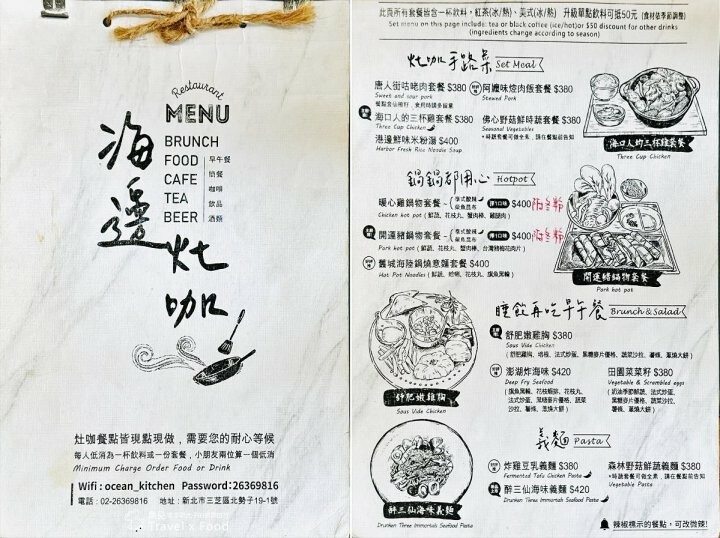 Restaurant
MENU
海邊灶咖
BRUNCH 早午餐
FOOD 簡餐
CAFE 咖啡
TEA 飲品
BEER 酒類
灶咖餐點皆現點現做，需要您的耐心等候
每人低消為一杯飲料或一份套餐，小朋友兩位算一個低消
Minimum Charge Order Food or Drink
Wifi : ocean_kitchen Password:26369816
電話 : 02-26369816 地址 : 新北市三芝區北勢子19-1號
Travel x Food
此頁所有套餐皆含一杯飲料，紅茶(冰/熱)、美式(冰/熱) 升級單點飲料可抵50元 (食材依季節調整)
Set menu on this page include: tea or black coffee (ice/hot)or $50 discount for other drinks
(ingredients change according to season)
灶咖手路菜 Set Meal
唐人街咕咾肉套餐 $380
Sweet and sour pork
海口人的三杯雞套餐 $380
Three Cup Chicken
港邊鮮味米粉湯 $400
Harbor Fresh Rice Noodle Soup
阿嬤味焢肉飯套餐 $380
Stewed Pork
佛心野菇鮮時蔬套餐 $380
Seasonal Vegetables
海口人的三杯雞套餐
Three Cup Chicken
鍋鍋都用心 Hotpot
暖心雞鍋物套餐 $400
Chicken hot pot (鮮蔬、花枝丸、蟹肉棒、雞腿肉)
開運豬鍋物套餐 $400
Pork hot pot (鮮蔬、花枝丸、蟹肉棒、台灣豬梅花肉片)
舊城海陸鍋燒意麵套餐 $400
Hot Pot Noodles (鮮蔬、蛤蜊、花枝丸、旗魚黑輪)
開運豬鍋物套餐
Pork hot pot
睡飽再吃早午餐 Brunch & Salad
舒肥嫩雞胸 $380
Sous Vide Chicken
澎湖炸海味 $420
Deep Fry Seafood
田園菜菜籽 $380
Vegetable & Scrambled eggs
舒肥嫩雞胸
Sous Vide Chicken
義麵 Pasta
炸雞豆乳義麵 $380
Fermented Tofu Chicken Pasta
醉三仙海味義麵 $420
Drunken Three Immortals Seafood Pasta
森林野菇鮮蔬義麵 $380
Vegetable Pasta
醉三仙海味義麵
Drunken Three Immortals Seafood Pasta
辣椒標示的餐點，可改微辣!